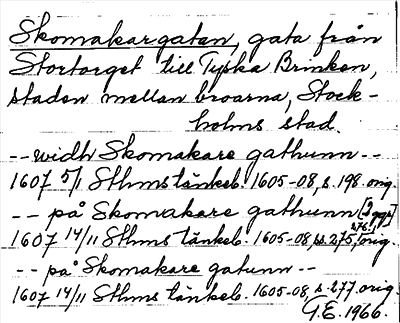 Skomakargatan, gata från
Stortorget till Tyska Brinken,
staden mellan broarna, Stock-
holms stad.
-- widh Skomakare gathunn --
1607 5/1 Sthms tänkeb. 1605-08, s. 198. orig.
-- på Skomakare gathunn [2 ggr]
1607 14/11 Sthms tänkeb. 1605-08, ss. 275, 276, orig.
-- på Skomakare gatunn --
1607 14/11 Sthms tänkeb. 1605-08, s. 277. orig.
G.E. 1966.